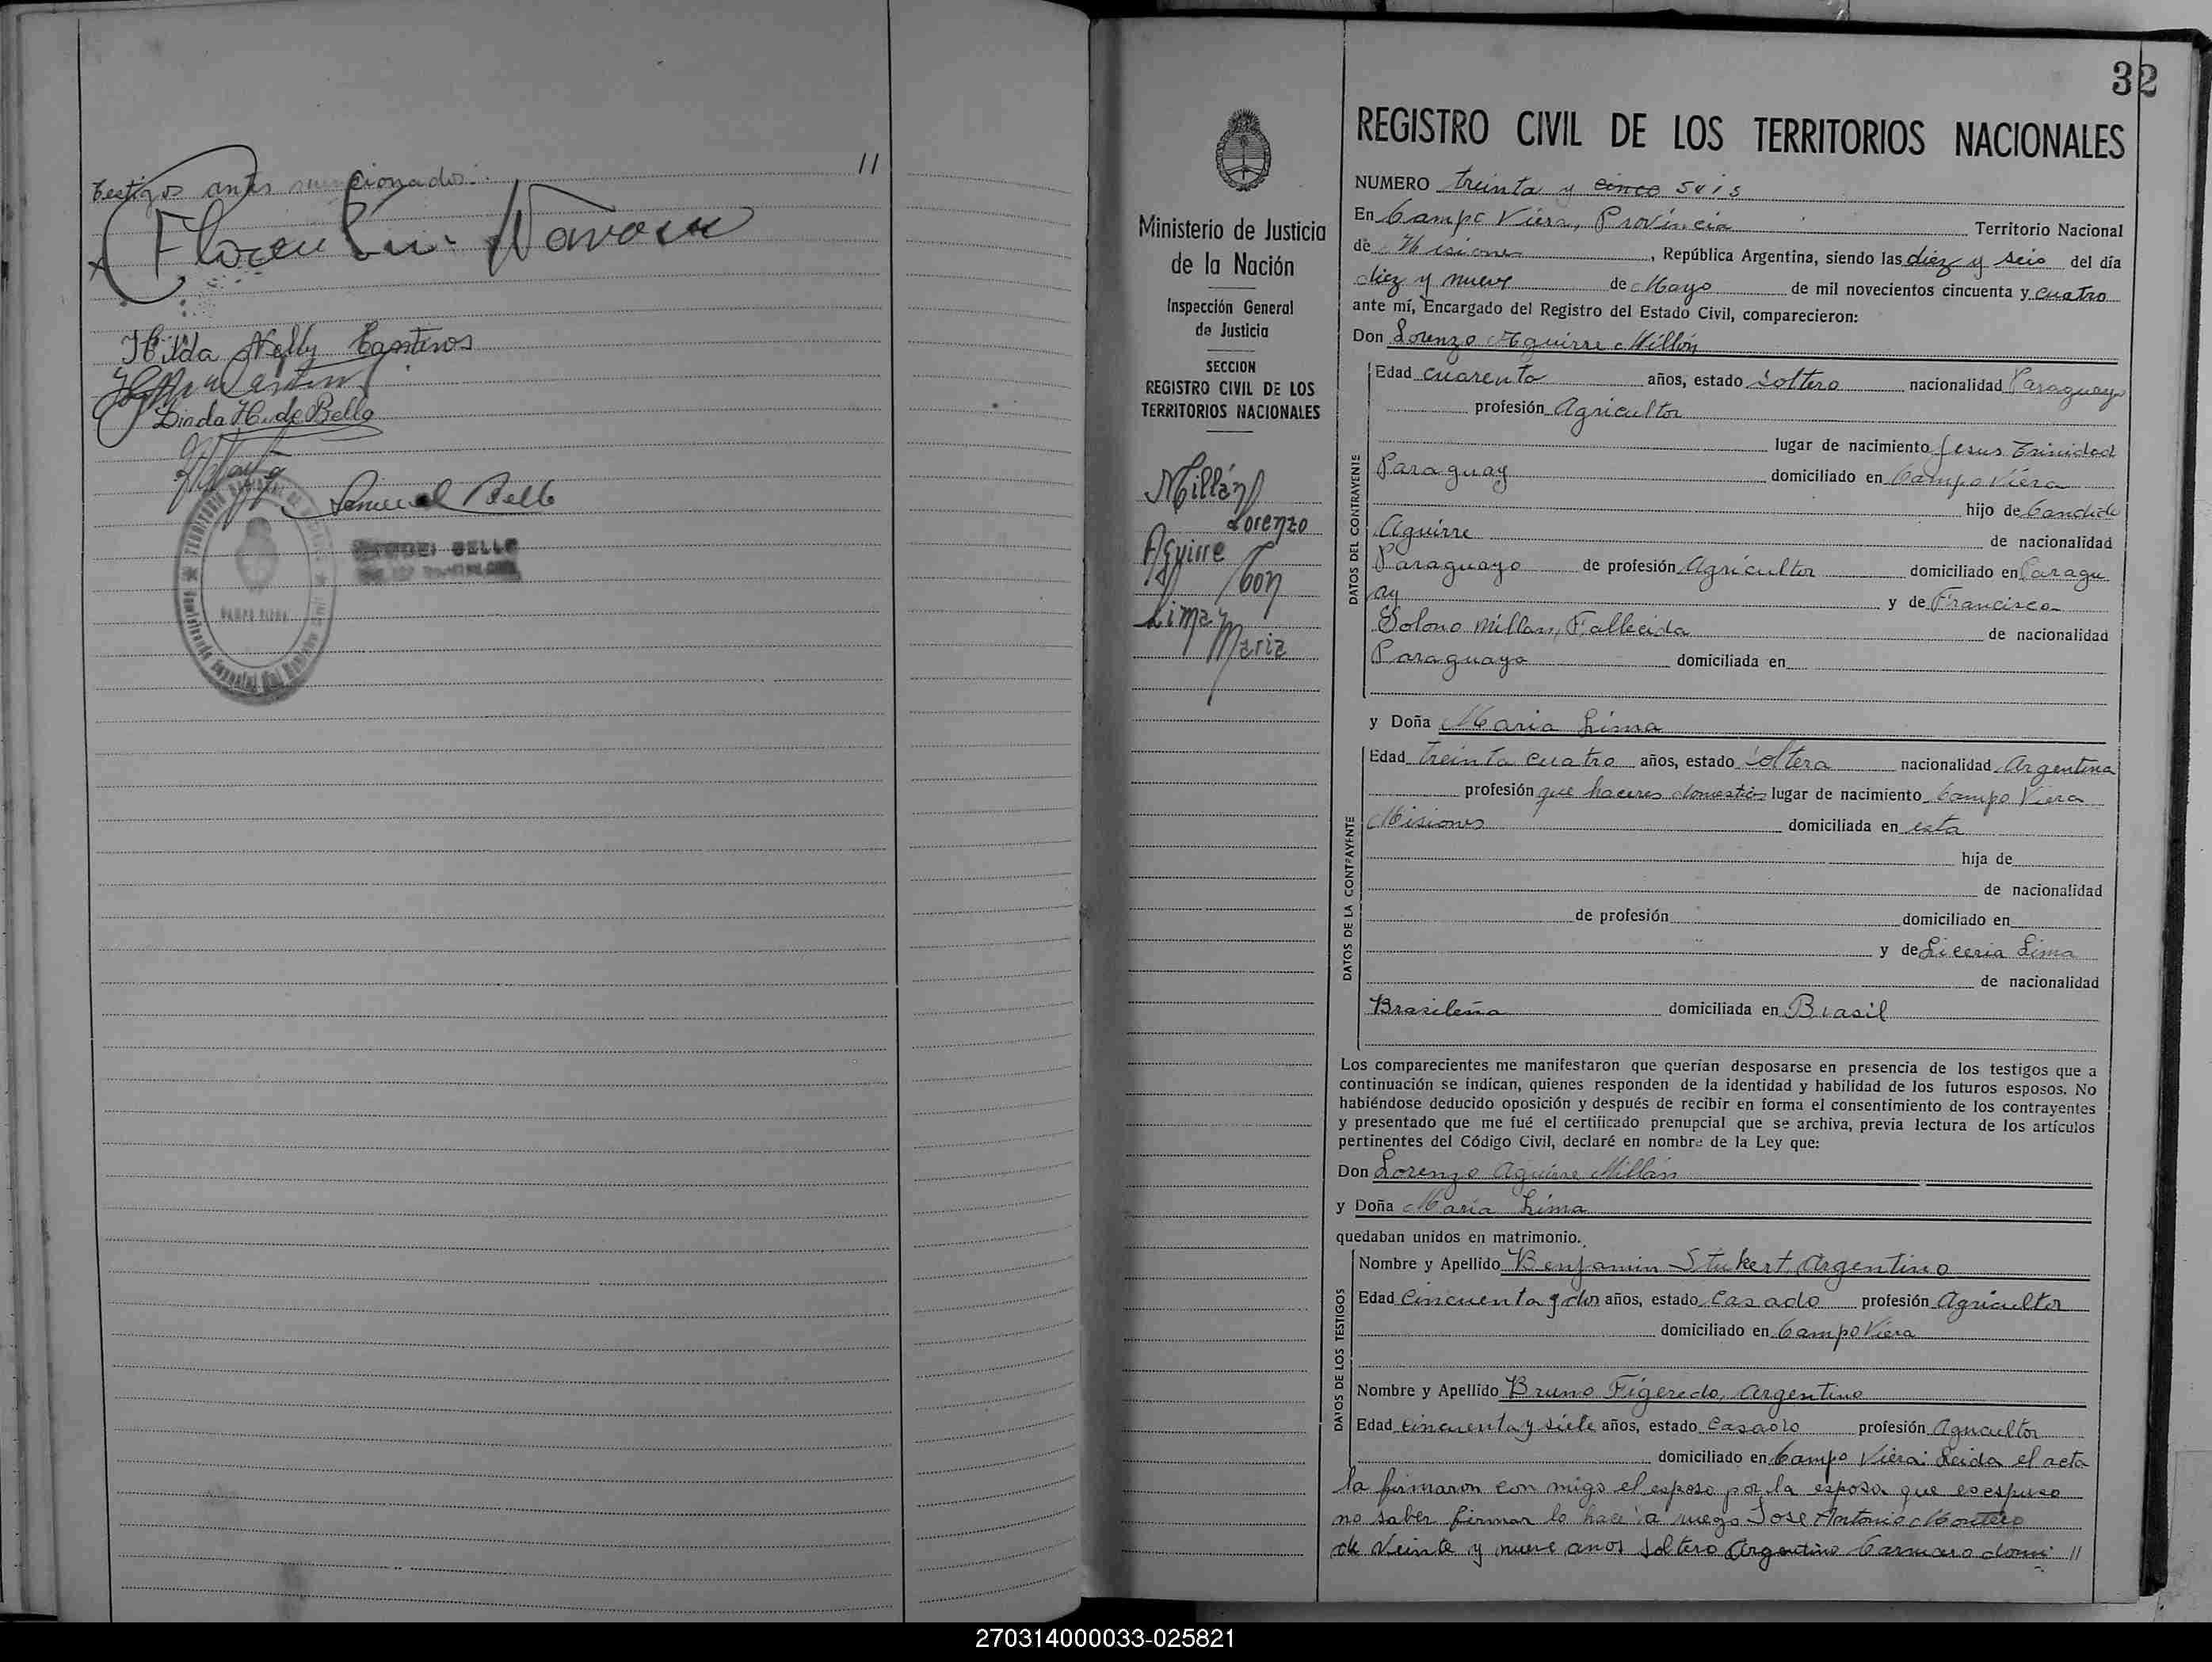 11
testigos antes mencionados.
Hilda Nelly
Linda H. de Bello
Samuel Bello
SAMUEL BELLO
CAMPO VIERA
32
Ministerio de Justicia
de la Nación
Inspección General
de Justicia
SECCION
REGISTRO CIVIL DE LOS
TERRITORIOS NACIONALES
Millán
Lorenzo
Aguirre
Con
Lima
Maria
REGISTRO CIVIL DE LOS TERRITORIOS NACIONALES
NUMERO treinta y cinco seis
En Campo Viera, Provincia Territorio Nacional
de Misiones, República Argentina, siendo las diez y seis del día
diez y nueve de Mayo de mil novecientos cincuenta y cuatro
ante mí, Encargado del Registro del Estado Civil, comparecieron:
Don Lorenzo Aguirre Millán
DATOS DEL CONTRAYENTE
Edad cuarenta años, estado Soltero nacionalidad Paraguayo
profesión Agricultor
lugar de nacimiento Jesus Trinidad
Paraguay domiciliado en Campo Viera
hijo de Candido
Aguirre de nacionalidad
Paraguayo de profesión Agricultor domiciliado en Paragu
ay y de Francisca
Solono Millan, Fallecida de nacionalidad
Paraguaya domiciliada en
y Doña Maria Lima
DATOS DE LA CONTRAYENTE
Edad treinta cuatro años, estado Soltera nacionalidad Argentina
profesión que haceres domesticos lugar de nacimiento Campo Viera
Misiones domiciliada en esta
hija de
de nacionalidad
de profesión domiciliado en
y de Liceria Lima
de nacionalidad
Brasileña domiciliada en Brasil
Los comparecientes me manifestaron que querían desposarse en presencia de los testigos que a
continuación se indican, quienes responden de la identidad y habilidad de los futuros esposos. No
habiéndose deducido oposición y después de recibir en forma el consentimiento de los contrayentes
y presentado que me fué el certificado prenupcial que se archiva, previa lectura de los artículos
pertinentes del Código Civil, declaré en nombre de la Ley que:
Don Lorenzo Aguirre Millán
y Doña Maria Lima
quedaban unidos en matrimonio.
DATOS DE LOS TESTIGOS
Nombre y Apellido Benjamin Stukert, Argentino
Edad Cincuenta y dos años, estado Casado profesión Agricultor
domiciliado en Campo Viera
Nombre y Apellido Bruno Figeredo, Argentino
Edad cincuenta y siete años, estado Casado profesión Agricultor
domiciliado en Campo Viera. Leida el acta
la firmaron con migo el esposo por la esposa que espuso
no saber firmar lo hace a ruego Jose Antonio Montero
de veinte y nueve anos Soltero Argentino domi 11
270314000033-025821